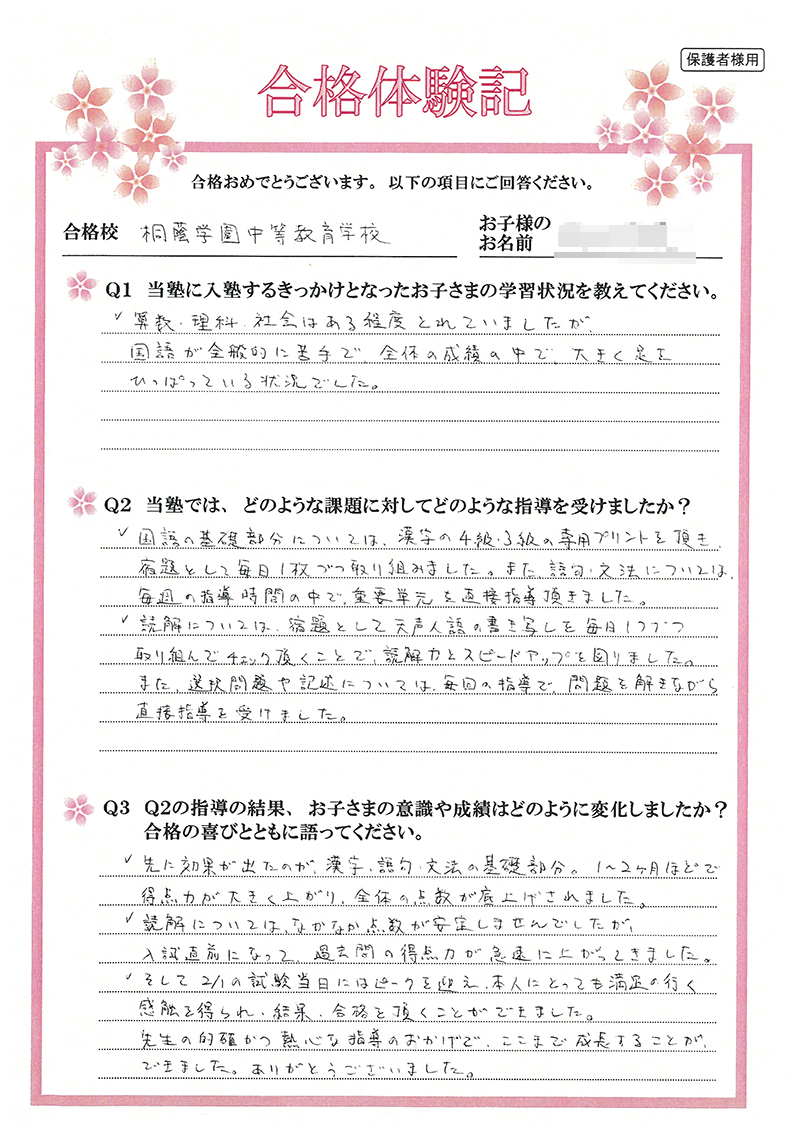 保護者様用
合格体験記
合格おめでとうございます。以下の項目にご回答ください。
合格校 桐蔭学園中等教育学校
お子様の
お名前
Q1 当塾に入塾するきっかけとなったお子さまの学習状況を教えてください。
✓算数・理科・社会はある程度とれていましたが、
国語が全般的に苦手で、全体の成績の中で、大きく足を
ひっぱっている状況でした。
Q2 当塾では、どのような課題に対してどのような指導を受けましたか?
✓国語の基礎部分については、漢字の4級・3級の専用プリントを頂き、
宿題として毎日1枚づつ取り組みました。また、語句・文法については、
毎週の指導時間の中で、重要単元を直接指導頂きました。
✓読解については、宿題として天声人語の書き写しを毎日1つづつ
取り組んでチェック頂くことで、読解力とスピードアップを図りました。
また、選択問題や記述については、毎回の指導で、問題を解きながら
直接指導を受けました。
Q3 Q2の指導の結果、お子さまの意識や成績はどのように変化しましたか?
合格の喜びとともに語ってください。
✓先に効果が出たのが、漢字・語句・文法の基礎部分。1〜2ヶ月ほどで
得点力が大きく上がり、全体の点数が底上げされました。
✓読解については、なかなか点数が安定しませんでしたが、
入試直前になって、過去問の得点力が急速に上がってきました。
✓そして2/1の試験当日にはピークを迎え、本人にとっても満足の行く
感触を得られ、結果、合格を頂くことができました。
先生の的確かつ熱心な指導のおかげで、ここまで成長することが、
できました。ありがとうございました。